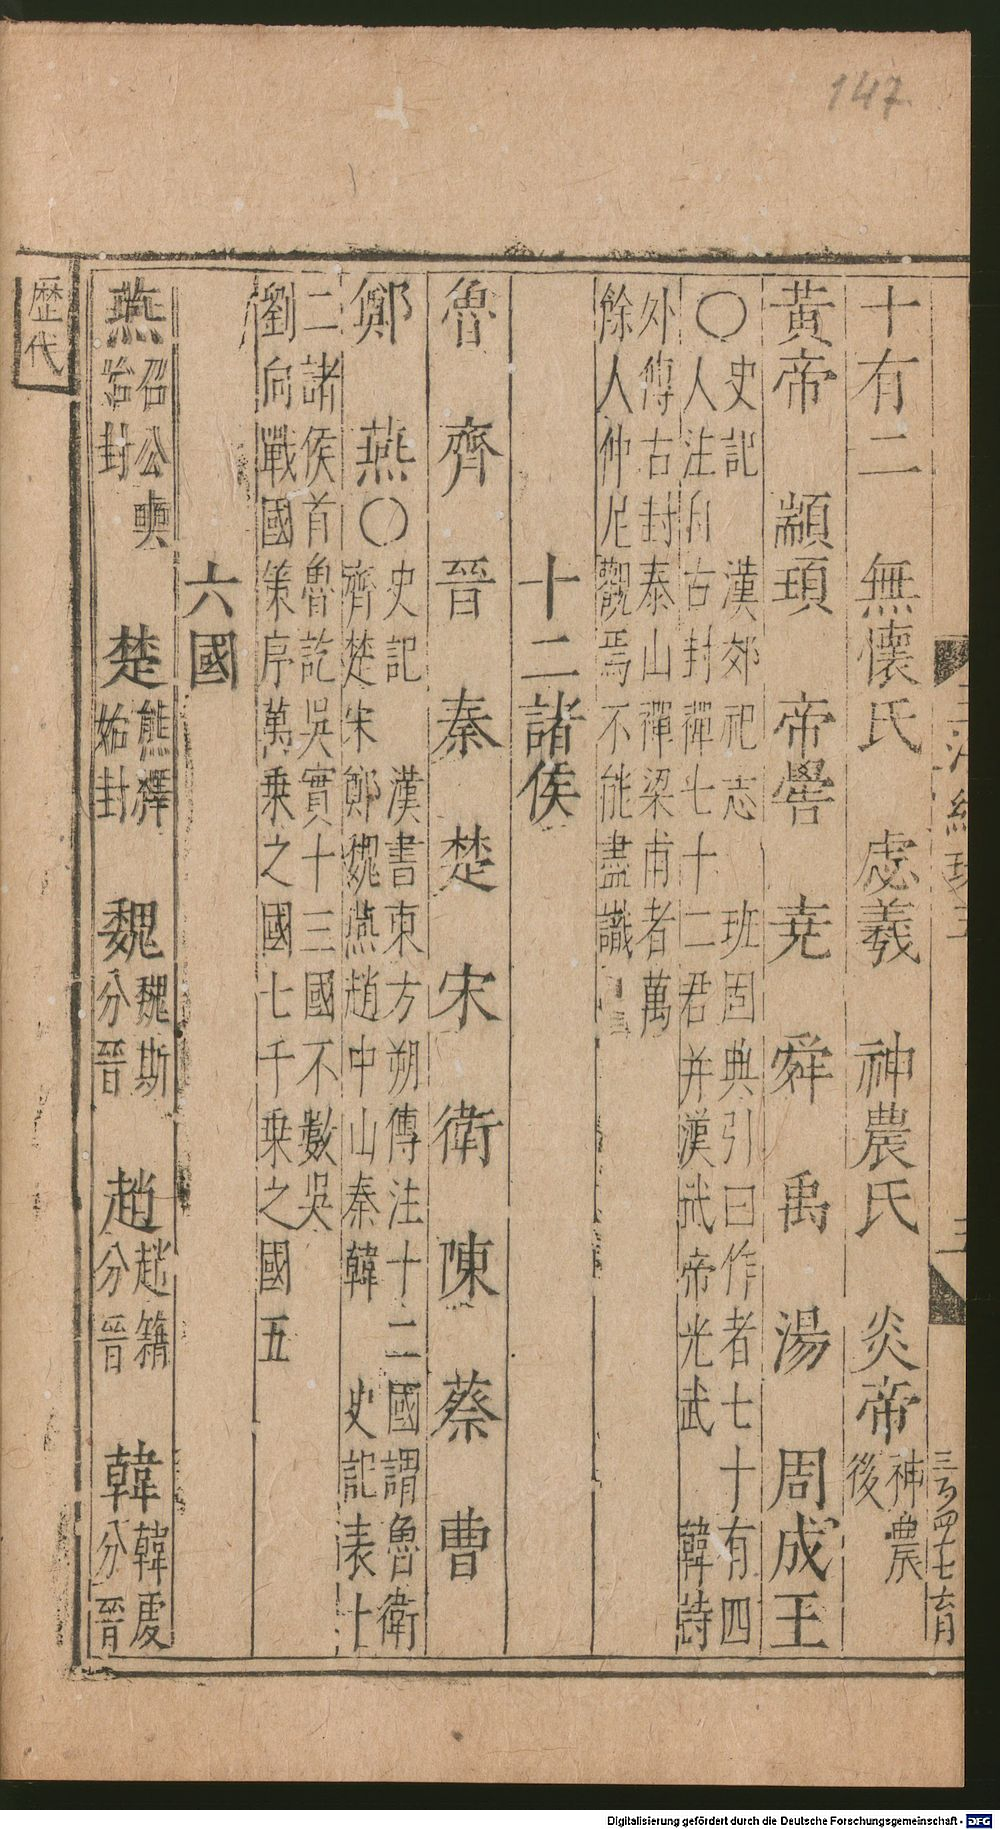 147
十有二　無懷氏　虙羲　神農氏　炎帝神農後
黃帝　顓頊　帝嚳　尭　舜　禹　湯　周成王
○史記　漢郊祀志　班固典引曰作者七十有四
人注自古封禪七十二君并漢武帝光武　韓詩
外傳古封泰山禪梁甫者萬
餘人仲尼觀焉不能盡識
十二諸侯
魯　齊　晉　秦　楚　宋　衛　陳　蔡　曹
鄭　燕○史記　漢書東方朔傳注十二國謂魯衛
齊楚宋鄭魏燕趙中山秦韓　史記表十
二諸侯首魯訖吳實十三國不數吳
劉向戰國策序萬乗之國七千乗之國五
六國
燕召公奭始封　楚熊繹始封　魏魏斯分晉　趙趙籍分晉　韓韓虔分晉
歴代
Digitalisierung gefördert durch die Deutsche Forschungsgemeinschaft - DFG